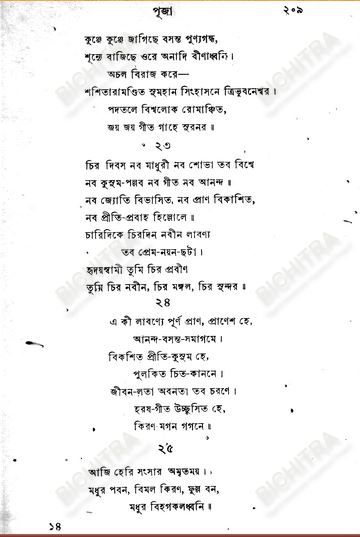 পূজা ২০৯
কুঞ্জে কুঞ্জে জাগিছে বসন্ত পুণ্যগন্ধ,
শূন্যে বাজিছে ওরে অনাদি বীণাধ্বনি।
অচল বিরাজ করে—
শশিতারামণ্ডিত সুমহান সিংহাসনে ত্রিভুবনেশ্বর।
পদতলে বিশ্বলোক রোমাঞ্চিত,
জয় জয় গীত গাহে সুরনর॥
২৩
চির দিবস নব মাধুরী নব শোভা তব বিশ্বে
নব কুসুম-পল্লব নব গীত নব আনন্দ॥
নব জ্যোতি বিভাসিত, নব প্রাণ বিকাশিত,
নব প্রীতি-প্রবাহ হিল্লোলে॥
চারিদিকে চিরদিন নবীন লাবণ্য
তব প্রেম-নয়ন-ছটা।
হৃদয়স্বামী তুমি চির প্রবীণ
তুমি চির নবীন, চির মঙ্গল, চির সুন্দর॥
২৪
এ কী লাবণ্যে পূর্ণ প্রাণ, প্রাণেশ হে,
আনন্দ-বসন্ত-সমাগমে।
বিকশিত প্রীতি-কুসুম হে,
পুলকিত চিত-কাননে।
জীবন-লতা অবনতা তব চরণে।
হরষ-গীত উচ্ছ্বসিত হে,
কিরণ-মগন গগনে॥
২৫
আজি হেরি সংসার অমৃতময়।
মধুর পবন, বিমল কিরণ, ফুল্ল বন,
মধুর বিহগকলধ্বনি॥
১৪
BICHITRA
BICHITRA
BICHITRA
BICHITRA
BICHITRA
BICHITRA